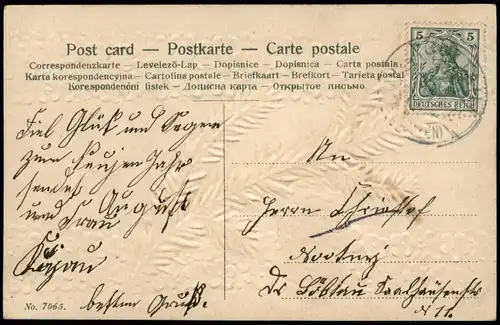 Post card — Postkarte — Carte postale
Correspondenzkarte — Levelező-Lap — Dopisnice — Dopisnica — Carta postala
Karta korespondencyjna — Cartolina postale — Briefkaart — Brefkort — Tarjeta postal
Korespondenční lístek — Дописна карта — Открытое письмо
5 5
DEUTSCHES REICH
Viel Glück und Segen
zum Neujen Jahr
sendet August
und Frau
besten Gruß.
An
Herrn
Dr Löbtau Saalhausenstr
N 11.
No. 7065.